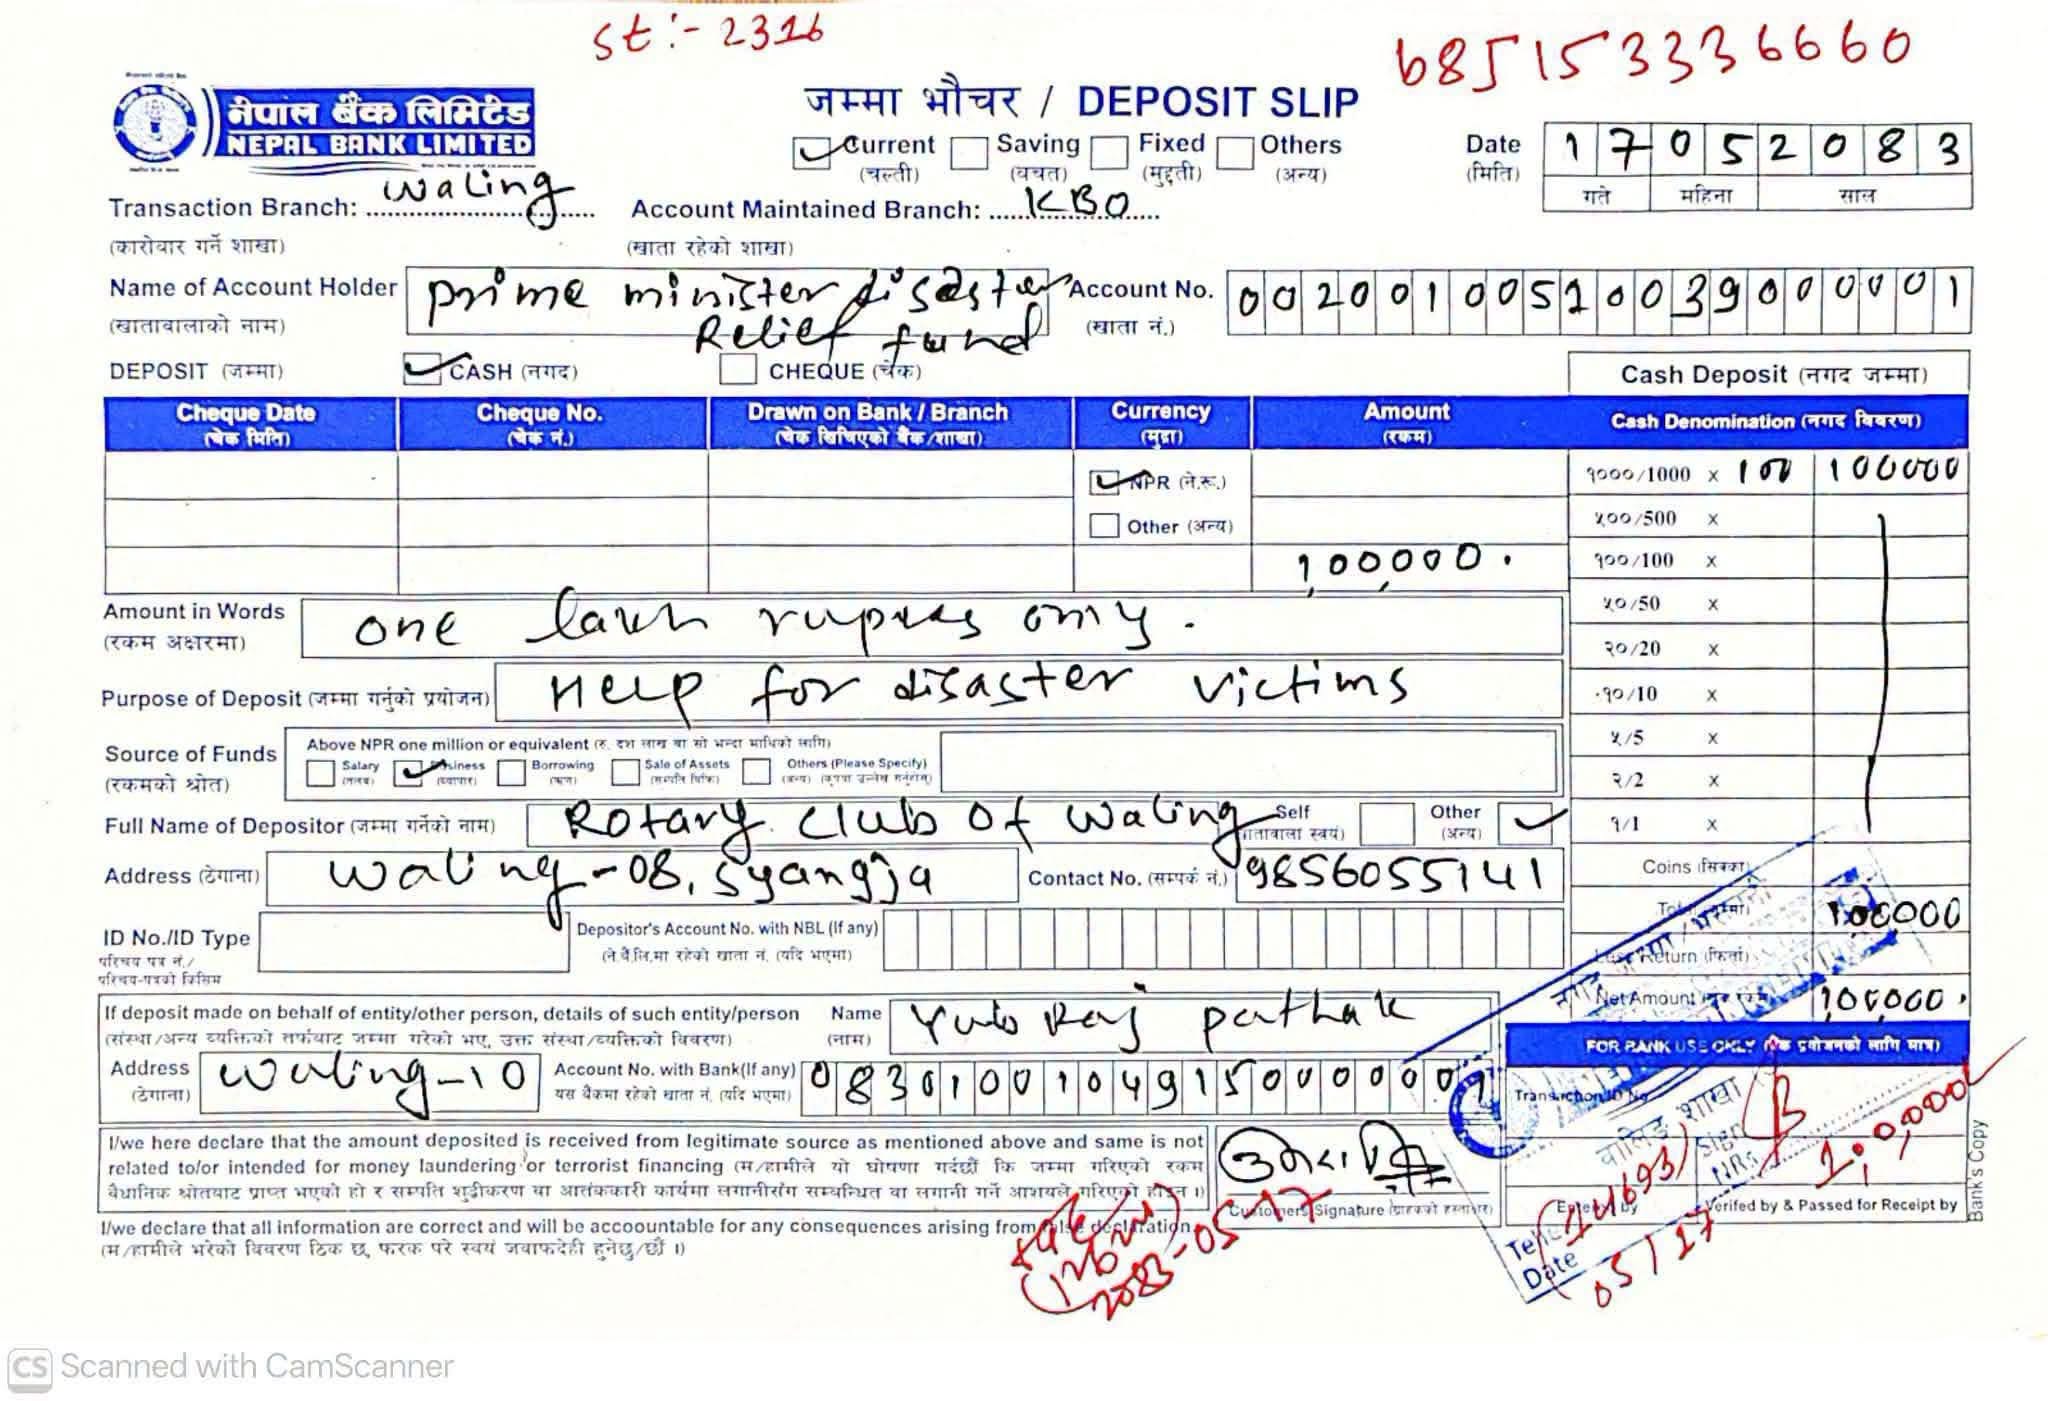 St:- 2316
685153336660
नेपाल बैंक लिमिटेड
NEPAL BANK LIMITED
जम्मा भौचर / DEPOSIT SLIP
Current (चल्ती) Saving (बचत) Fixed (मुद्दती) Others (अन्य)
Date (मिति) 17052083
गते महिना साल
Transaction Branch: Waling
(कारोवार गर्ने शाखा)
Account Maintained Branch: KBO
(खाता रहेको शाखा)
Name of Account Holder prime minister disaster
(खातावालाको नाम) Relief fund
Account No. 00200100510039000001
(खाता नं.)
DEPOSIT (जम्मा) CASH (नगद) CHEQUE (चेक)
Cash Deposit (नगद जम्मा)
Cheque Date Cheque No. Drawn on Bank / Branch Currency Amount Cash Denomination (नगद विवरण)
(चेक मिति) (चेक नं.) (चेक खिचिएको बैंक/शाखा) (मुद्रा) (रकम)
NPR (ने.रू.)
Other (अन्य)
1,00,000.
१०००/1000 x 100 100000
५००/500 x
१००/100 x
५०/50 x
२०/20 x
१०/10 x
५/5 x
२/2 x
१/1 x
Coins (सिक्का)
100,000
Return (फिर्ता)
Net Amount 1,00,000.
Amount in Words one lakh rupees only.
(रकम अक्षरमा)
Purpose of Deposit (जम्मा गर्नुको प्रयोजन) Help for disaster victims
Source of Funds
(रकमको श्रोत)
Above NPR one million or equivalent (रु. दश लाख वा सो भन्दा माथिको लागि)
Salary Business Borrowing Sale of Assets Others (Please Specify)
(तलब) (व्यापार) (ऋण) (सम्पत्ति बिक्रि) (अन्य) (कृपया उल्लेख गर्नुहोस्)
Full Name of Depositor (जम्मा गर्नेको नाम) Rotary Club Of Waling
Self Other
(अन्य)
Address (ठेगाना) Waling-08, Syangja
Contact No. (सम्पर्क नं.) 9856055141
ID No./ID Type
परिचय पत्र नं./
परिचय-पत्रको किसिम
Depositor's Account No. with NBL (If any)
(ने.बैं.लि.मा रहेको खाता नं. (यदि भएमा)
If deposit made on behalf of entity/other person, details of such entity/person
(संस्था/अन्य व्यक्तिको तर्फबाट जम्मा गरेको भए, उक्त संस्था/व्यक्तिको विवरण)
Name Yub Raj pathak
(नाम)
Address Waling-10
(ठेगाना)
Account No. with Bank(If any) 08301001049150000001
यस बैंकमा रहेको खाता नं. (यदि भएमा)
FOR BANK USE ONLY (बैंक प्रयोजनको लागि मात्र)
Transaction ID No
I/we here declare that the amount deposited is received from legitimate source as mentioned above and same is not
related to/or intended for money laundering or terrorist financing (म/हामीले यो घोषणा गर्दछौं कि जम्मा गरिएको रकम
वैधानिक श्रोतबाट प्राप्त भएको हो र सम्पति शुद्धीकरण वा आतंककारी कार्यमा लगानीसँग सम्बन्धित वा लगानी गर्ने आशयले गरिएको होइन ।)
I/we declare that all information are correct and will be accoountable for any consequences arising from false declaration.
(म/हामीले भरेको विवरण ठिक छ, फरक परे स्वयं जवाफदेही हुनेछु/छौं ।)
Customers Signature (ग्राहकको हस्ताक्षर)
2083-05-17
वालिङ शाखा
Sign
NRs 1,0,000
(14693)
Entered by
Verifed by & Passed for Receipt by
Teller
Date 05/17
Bank's Copy
CS Scanned with CamScanner